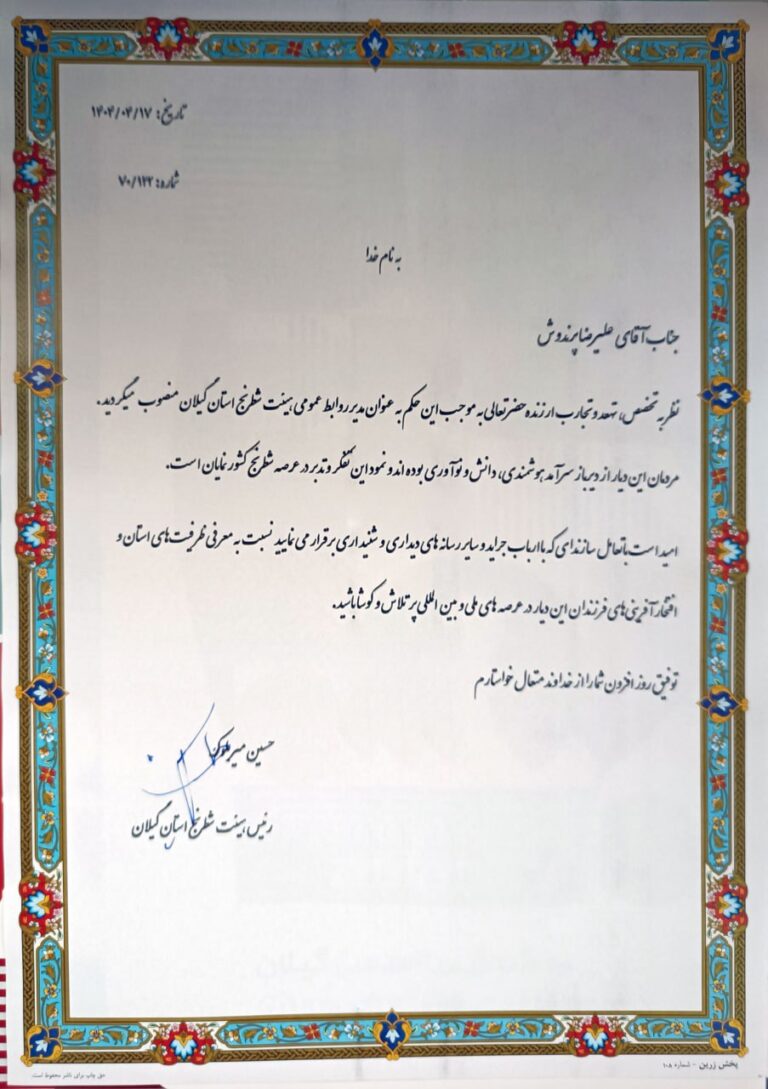 تاریخ: ۱۴۰۴/۰۴/۱۷
شماره: ۷۰/۱۲۲
به نام خدا
جناب آقای علیرضا پرندوش
نظر به تخصص، تعهد و تجارب ارزنده حضرتعالی به موجب این حکم به عنوان مدیر روابط عمومی هیئت شطرنج استان گیلان منصوب میگردید.
مردمان این دیار از دیرباز سرآمد هوشمندی، دانش و نوآوری بوده اند و نمود این تفکر و تدبر در عرصه شطرنج کشور نمایان است.
امید است با تعامل سازنده‌ای که با ارباب جراید و سایر رسانه های دیداری و شنیداری برقرار می نمایید نسبت به معرفی ظرفیت‌های استان و
افتخار آفرینی‌های فرزندان این دیار در عرصه های ملی و بین المللی پر تلاش و کوشا باشید.
توفیق روز افزون شما را از خداوند متعال خواستارم
حسین میر
رئیس هیئت شطرنج استان گیلان
پخش زرین - شماره ۱۰۸
حق چاپ برای ناشر محفوظ است.